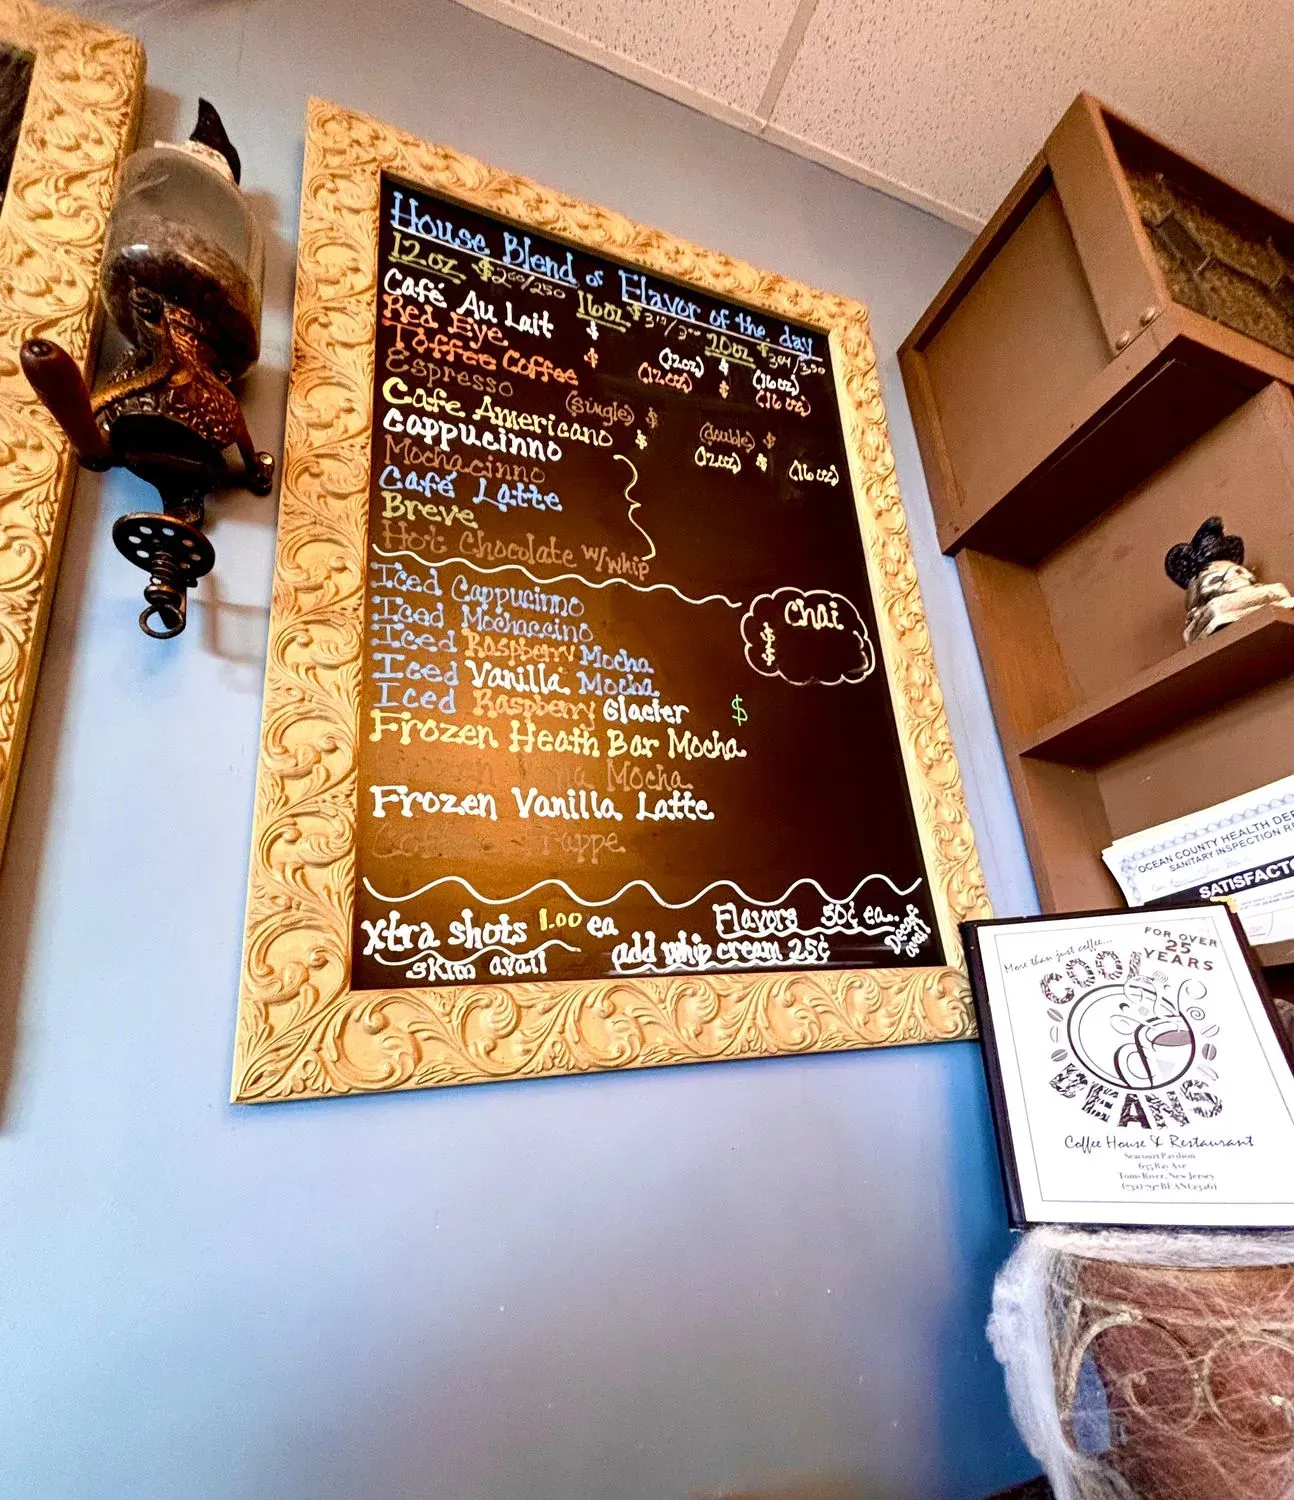 House Blend or Flavor of the day
12oz $2⁰⁰/250 16oz $ 20oz $
Café Au Lait $ (12oz) $ (16oz)
Red Eye $ (12oz) $ (16oz)
Toffee Coffee
Espresso (single) $ (double) $
Cafe Americano $ (12oz) $ (16oz)
Cappucinno
Mochacinno
Café Latte
Breve
Hot Chocolate w/whip
Chai
$
$
Iced Cappucinno
Iced Mochaccino
Iced Raspberry Mocha
Iced Vanilla Mocha
Iced Raspberry Glacier $
Frozen Heath Bar Mocha
Mocha
Frozen Vanilla Latte
Xtra shots 1.00 ea
skim avail
Flavors 50¢ ea.
add whip cream 25¢
Decaf avail
OCEAN COUNTY HEALTH DEP
SANITARY INSPECTION RE
SATISFACTO
FOR OVER
25
YEARS
More than just coffee...
COOL
BEANS
Coffee House & Restaurant
Seacourt Pavilion
635 Bay Ave
Toms River, New Jersey
(732) 797-BEAN (2326)